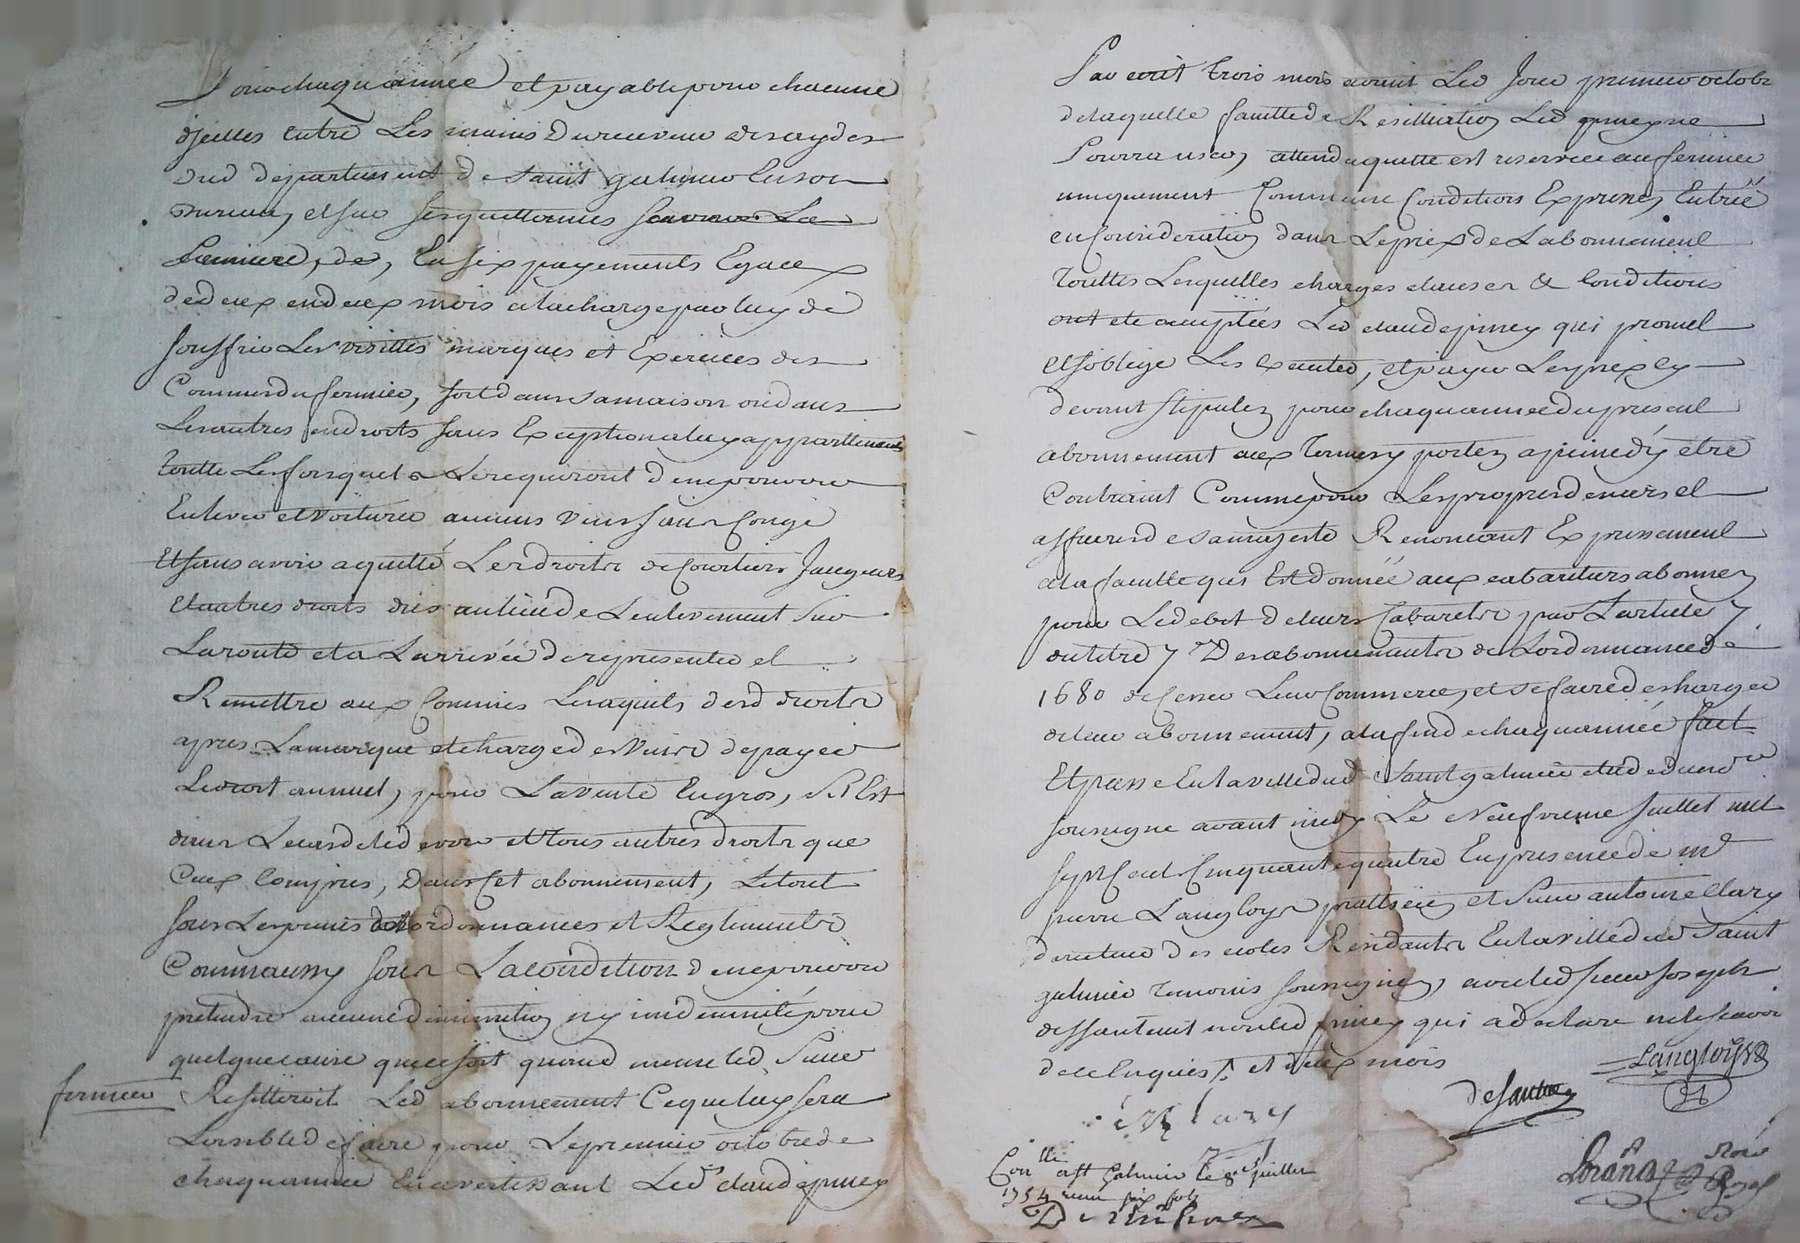 Pour chaque année et payable pour chacune
d'jcelles entre Les mains du receveur des aydes
dud departement de saint galmier En son
Bureau, et sur ses quittances
En six payements Egaux
de deux en deux mois a la charge par luy de
souffrir Les visittes marques et Exercices des
Commis du fermier, soit dans sa maison ou dans
Les autres endroits sans Exception a luy appartenants
toutte Les fois quels Le requiront de ne pouvoir
Enlever et voiturer aucuns vins sans Congé
Et sans avoir aquitté Les droits de Courtiers Jaugeurs
et autres droits dus au lieu de L'enlevement sur
La route et a L'arrivéé de representer et
Remettre aux Commis Les aquits desd droits
apres La marque et charge des vins de payer
Le droit annuel, pour La vente En gros, s'il Est
dans Le cas de le devoir et tous autres droits que
Ceux Compris, Dans Cet abonnement, Le tout
sous Les peines des ordonnances et Reglements
Commeaussy sous La Condition de ne pouvoir
pretendre aucune diminution ny indemnité pour
quelque cause que ce soit quand meme led. Sieur
fermier Resilieroit Led abonnement Ce que luy sera
Loisible de faire pour Le premier octobre de
chaque année En avertissant Led. claude piney
Par ecrit trois mois avant Led Jour premier octobr
de laquelle faculté de Resilliation Led piney ne
Pourra user, attendu quelle est reservée au fermier
uniquement Comme une Condition Expresse, Entréé
en Consideration dans Le prix de L'abonnement
Touttes Lesquelles charges clauses & Conditions
ont ete acceptées Led claude piney qui promet
et s'oblige Les executer, et payer Le prix cy
devant stipulez pour chaque année du present
abonnement aux Termes portez a peine d'y etre
Contraint Comme pour Les propres deniers et
affaires de sa majesté Renoncant Expressement
a la faculté qui Est donnéé aux cabartiers abonnez
pour Le debit de leurs Cabarets par L'article 7
du titre 7 Des abonnements de L'ordonnance de
1680 de Cesser Leur Commerce, et se faire decharger
de leur abonnement, a la fin de chaque annéé fait
Et passé En la ville dud saint galmier etude du nore
soussigne avant midy Le Neufvieme Juillet mil
sept Cent Cinquante quatre En presence de me
pierre Langloys pratticien et sieur antoine Clary
directeur des ecoles Residants En la ville dud Saint
galmier temoins soussignes, avec led sieur Joseph
dessauteur non led piney qui a declare ne le scavoir
de ce Enquis et deux mois
Langloys
Desauteur
Clary
Conlle a st Galmier le 9e Juillet
1754 reçu six sols